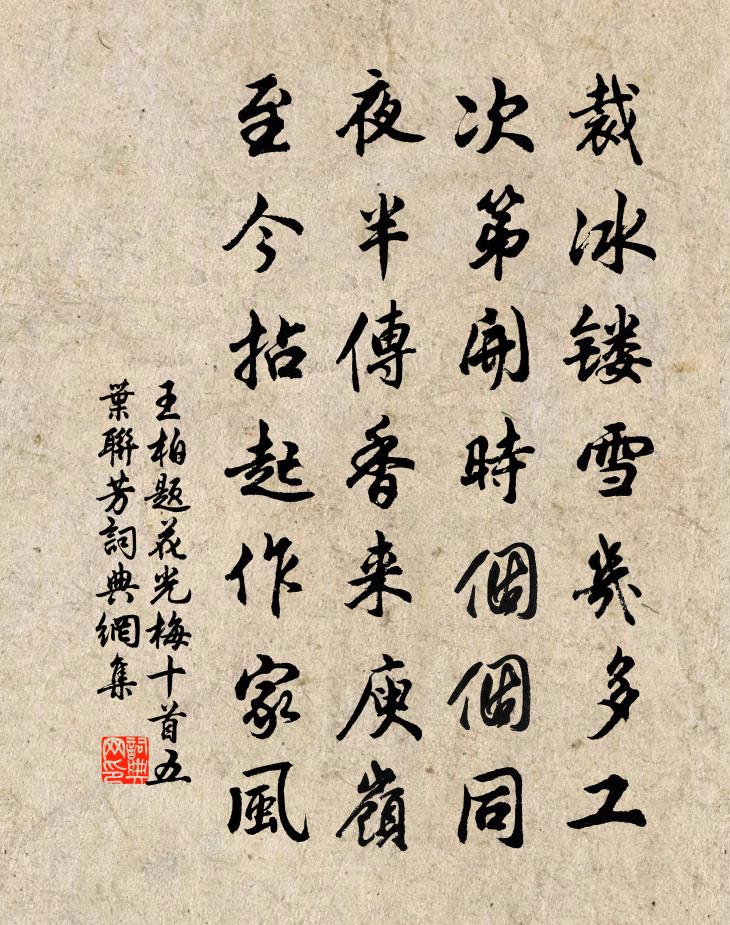 裁冰镂雪幾多工
次第開時個個同
夜半傳香来庾嶺
至今拈起作家風
王柏题花光梅十首五
葉聯芳詞典網集
詞典网印